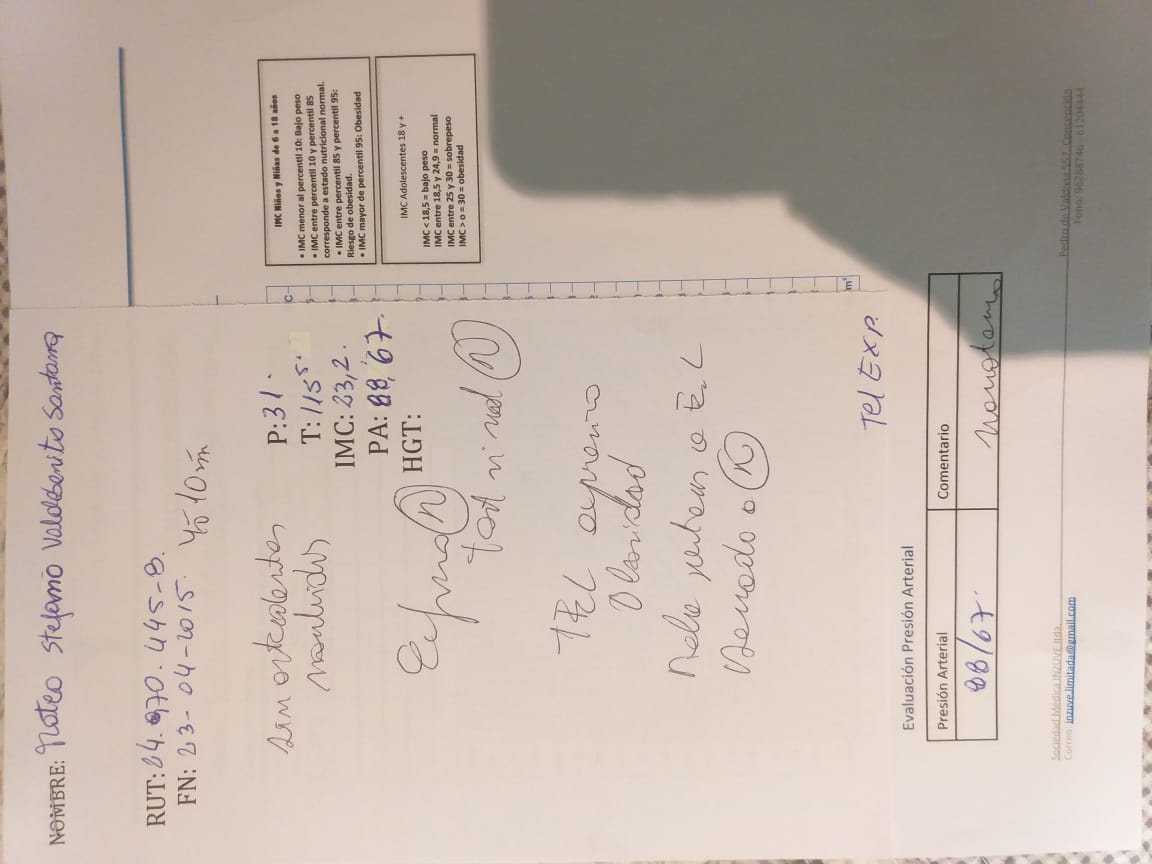 NOMBRE: Mateo Stefano Valdebenito Santana
RUT: 24.970.445-8.
FN: 23-04-2015.
10 m
sin antecedentes
morbidos
P: 31.
T: 115⁵.
IMC: 23,2.
PA: 88/67.
HGT:
IMC Niños y Niñas de 6 a 18 años
• IMC menor al percentil 10: Bajo peso
• IMC entre percentil 10 y percentil 85
corresponde a estado nutricional normal.
• IMC entre percentil 85 y percentil 95:
Riesgo de obesidad.
• IMC mayor de percentil 95: Obesidad
IMC Adolescentes 18 y +
IMC < 18,5 = bajo peso
IMC entre 18,5 y 24,9 = normal
IMC entre 25 y 30 = sobrepeso
IMC > o = 30 = obesidad
N
test visual N
TEL expresivo
Obesidad
a N
Tel Exp.
Evaluación Presión Arterial
Presión Arterial
Comentario
88/67.
Sociedad Médica INZUVE ltda.
Correo: inzuve.limitada@gmail.com
Pedro de Valdivia 557, Concepción
Fono: 96288746 - 61204444